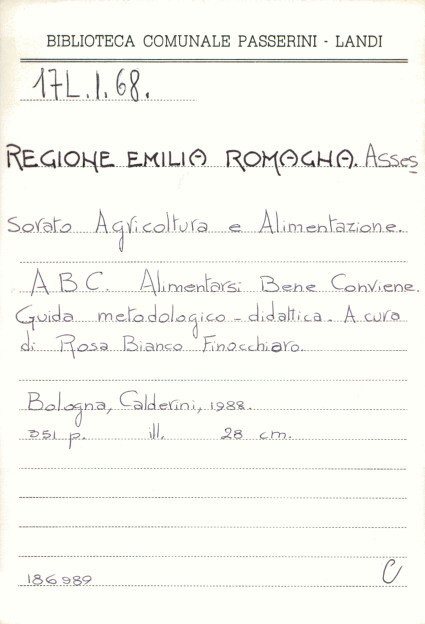 BIBLIOTECA COMUNALE PASSERINI - LANDI
17L.I.68.
REGIONE EMILIA ROMAGNA. Asses
sorato Agricoltura e Alimentazione.
A B C. Alimentarsi Bene Conviene.
Guida metodologico - didattica. A cura
di Rosa Bianco Finocchiaro.
Bologna, Calderini, 1988.
351 p. ill. 28 cm.
186989
C